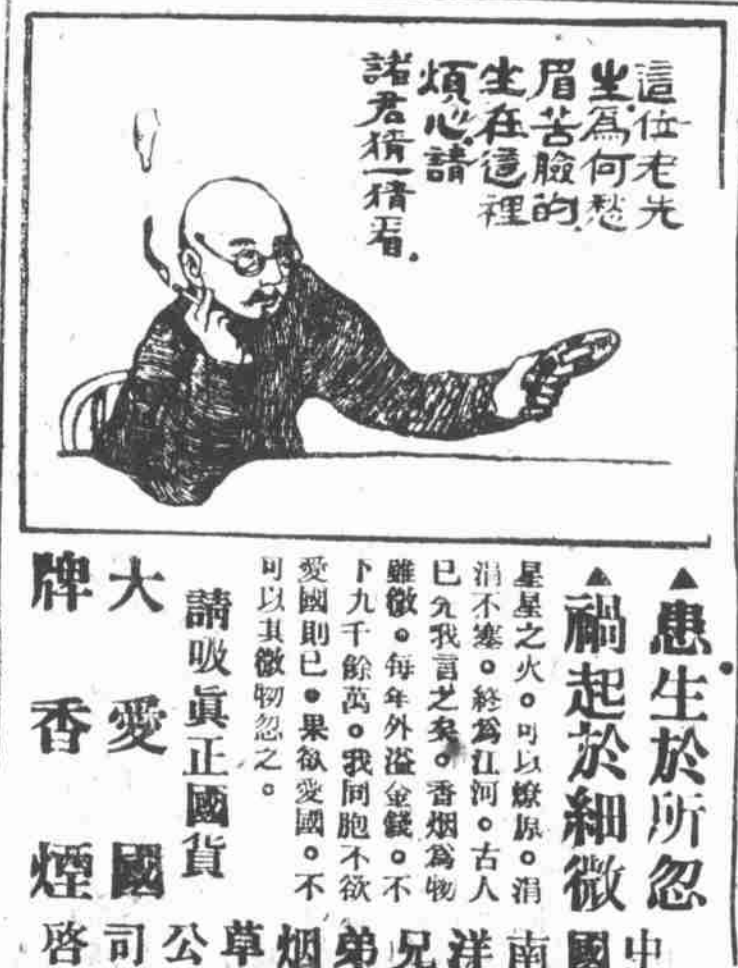 這位老先
生爲何愁
眉苦臉的
坐在這裡
煩心請
諸君猜一猜看。
▲患生於所忽
▲禍起於細微
星星之火。可以燎原。涓
涓不塞。終爲江河。古人
已先我言之矣。香烟爲物
雖微。每年外溢金錢。不
下九千餘萬。我同胞不欲
愛國則已。果欲愛國。不
可以其微物忽之。
請吸眞正國貨
大愛國
牌香煙
中國南洋兄弟烟草公司啓